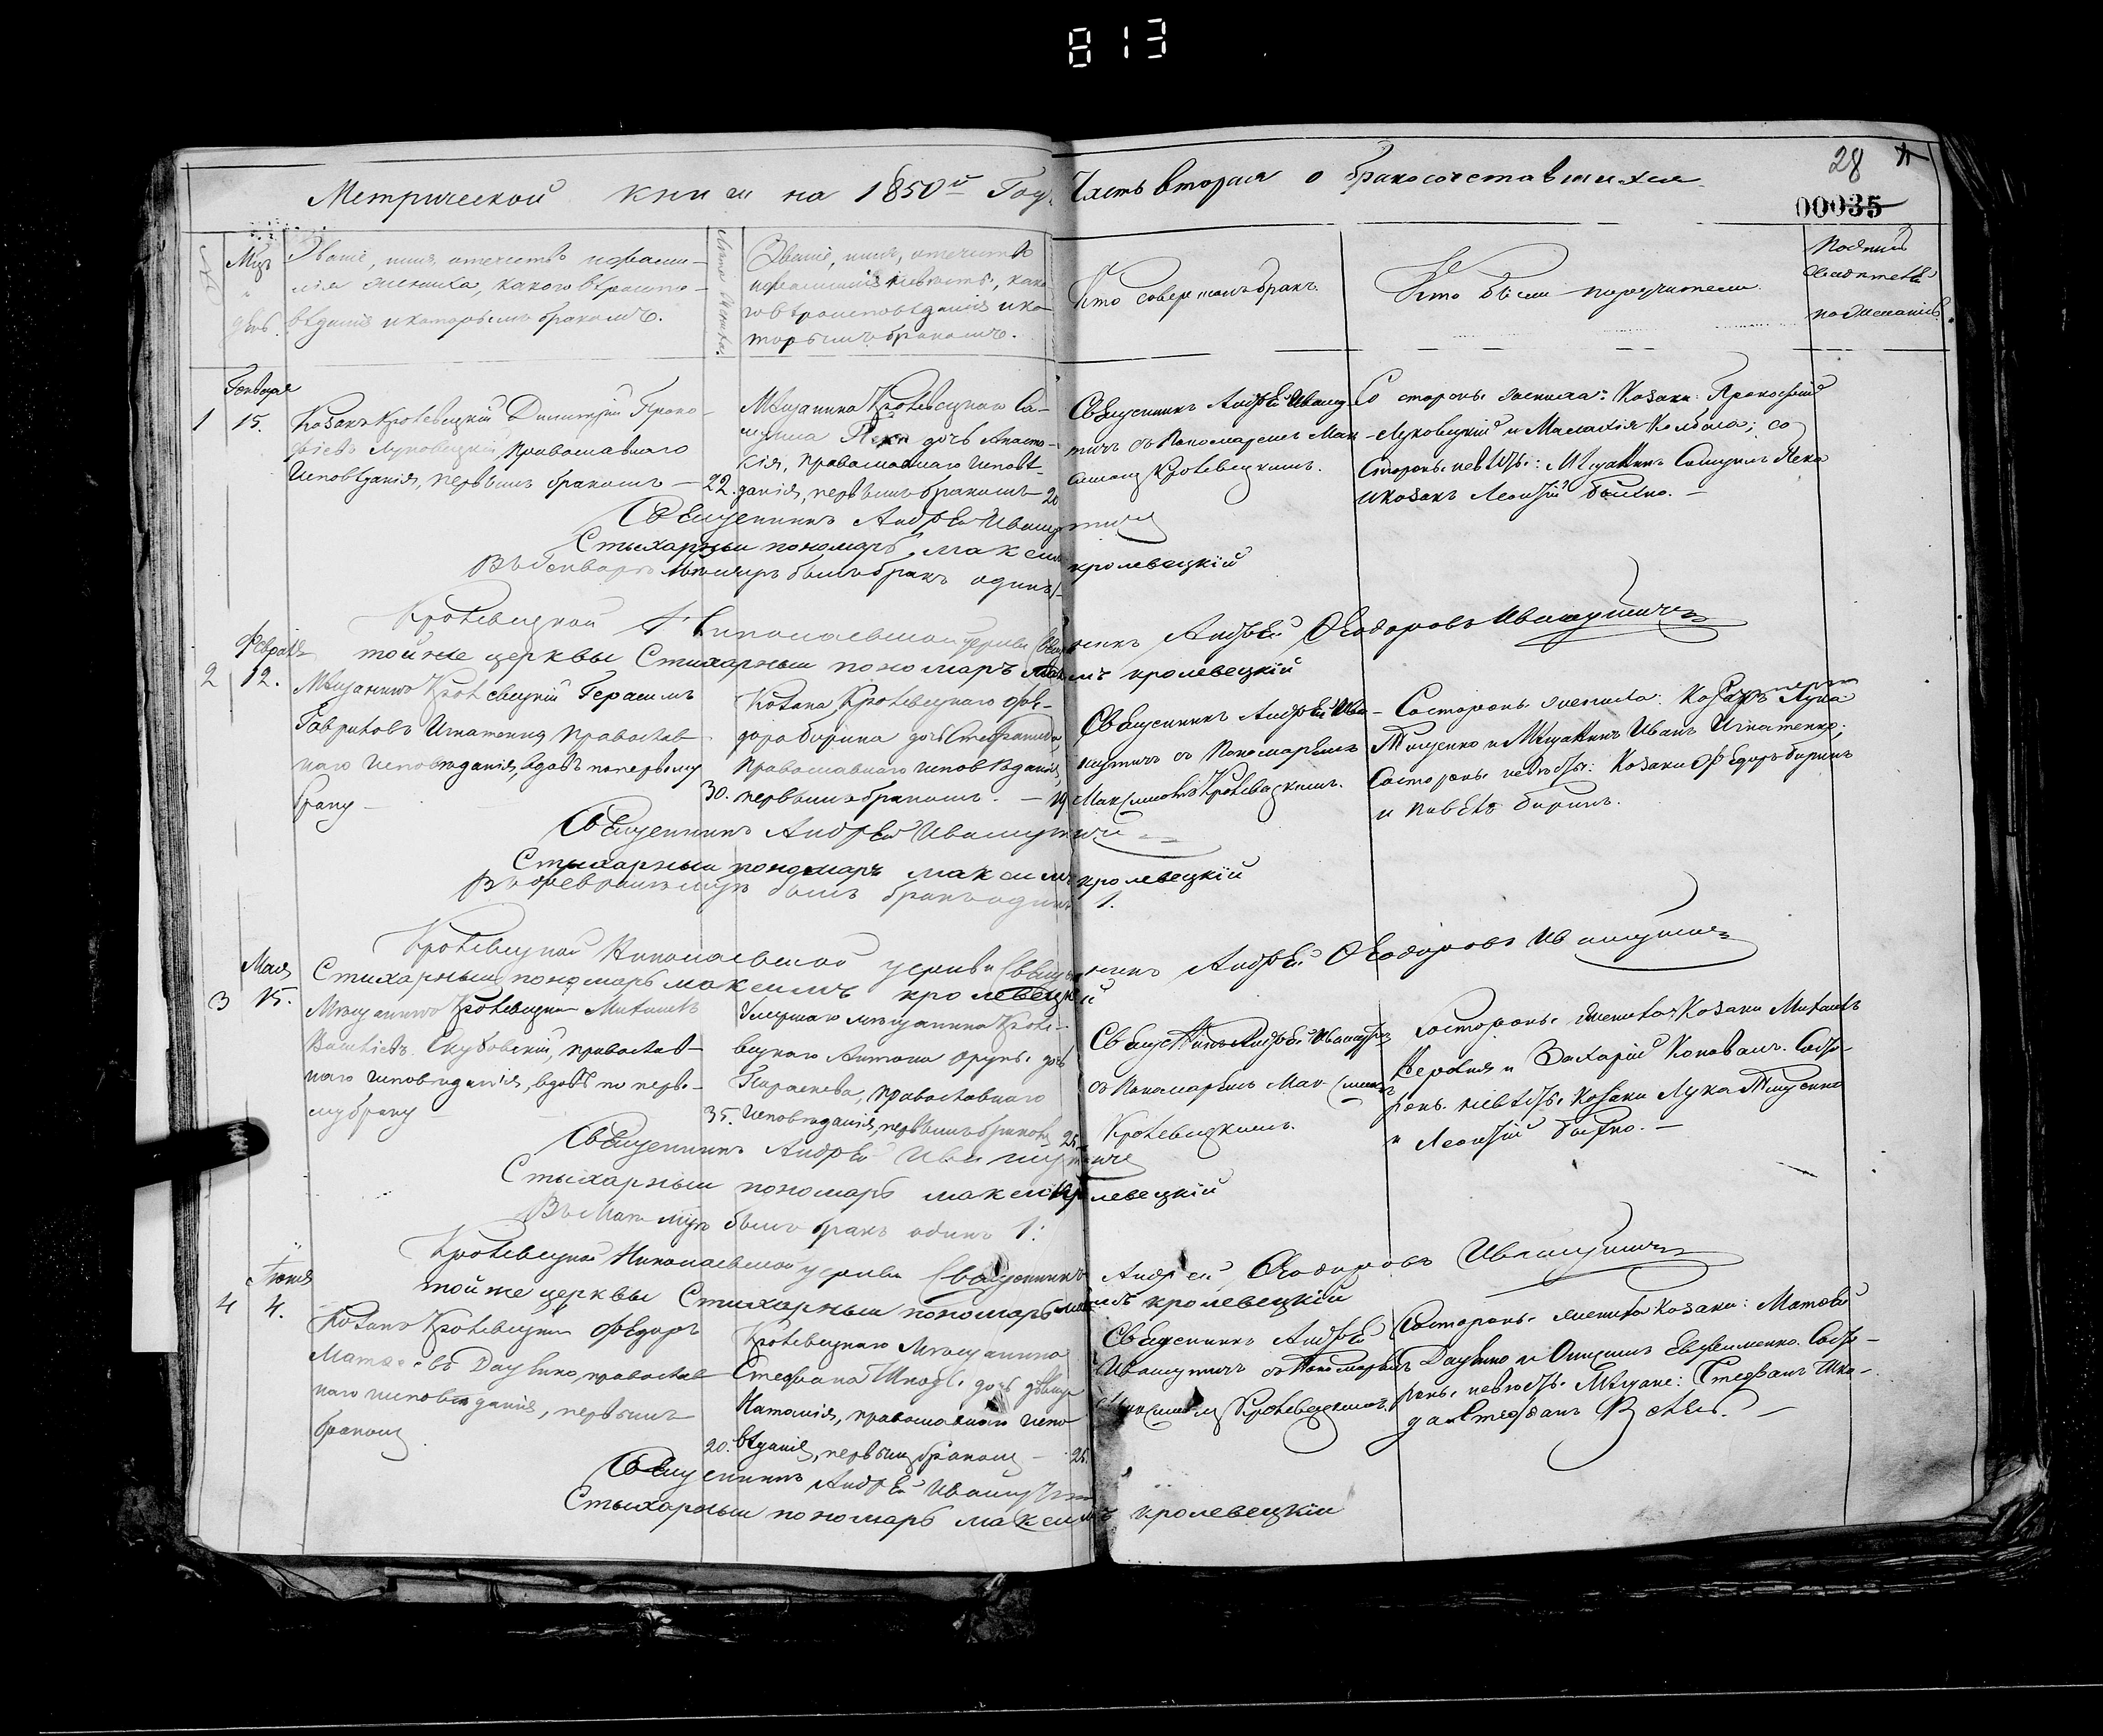 813
28
00035
Метрической книги на 1850й Годъ Часть вторая о бракосочетавшихся.
Мцъ
Званіе, имя, отечество и фами-
лія жениха, какого вѣроиспо-
вѣданія и которымъ бракомъ.
Лѣта жениха.
Званіе, имя, отечество
и фамилія невѣсты, како-
го вѣроисповѣданія и ко-
торымъ бракомъ.
Кто совершалъ бракъ.
Кто были поручители.
Генваря
1 15.
Козакъ Кролевецкій Димитрій Проко-
фіевъ Луковецкій, православнаго
исповѣданія, первымъ бракомъ — 22.
Мѣщанина Кролевецкаго Са-
дочь Анаста-
сія, православнаго исповѣ-
данія, первымъ бракомъ — 20
Священникъ Андрей Ивашу-
тичъ съ Пономаремъ Мак-
симомъ Кролевецкимъ.
Со стороны жениха: Козаки: Прокофій
Луковецкій и Малахія Колбаса; со
стороны невѣсты: Мѣщанинъ
и козакъ Леонтій
Священникъ Андрей Ивашутичъ
Стыхарный пономарь Максимъ кролевецкій
Въ Генварѣ мѣсяцѣ былъ бракъ одинъ 1
Кролевецкой Николаевской церкви Священникъ Андрей Ѳеодоровъ Ивашутичъ
Февраля
тойже церквы Стихарный пономаръ Максимъ кролевецкій
2 12.
Мѣщанинъ Кролевецкій Герасимъ
Гавриловъ Игнатенко, православ-
наго исповѣданія, вдовъ по первому
браку — 30.
Козака Кролевецкаго Фео-
дора Бирина дочь Стефанида,
православнаго исповѣданія,
первымъ бракомъ. — 19
Священникъ Андрей Ива-
шутичъ съ Пономаремъ
Максимомъ Кролевецкимъ.
Со стороны жениха: Козакъ Лука
Тищенко и Мѣщанинъ Иванъ Игнатенко;
Со стороны невѣсты: Козаки Федоръ Биринъ
и Павелъ Биринъ.
Священникъ Андрей Ивашутичъ
Стыхарный пономаръ Максимъ кролевецкій
Въ Февралѣ мцѣ былъ бракъ одинъ 1.
Кролевецкой Николаевской церкви Священникъ Андрей Ѳеодоровъ Ивашутичъ
Мая
Стихарный пономарь максимъ кролевецкій
3 15.
Мѣщанинъ Кролевецкій Михаилъ
Василіевъ православ-
наго исповѣданія, вдовъ по перво-
му браку 35.
Умершаго мѣщанина Кроле-
вецкаго Антона дочь
Параскева, православнаго
исповѣданія, первымъ бракомъ 25.
Священникъ Андрей Ивашутичъ
съ Пономаремъ Максимомъ
Кролевецкимъ.
Со стороны жениха Козаки Михаилъ
и Захарій Коновалъ. Со сто-
роны невѣсты Козаки Лука Тищенко
и Леонтій
Священникъ Андрей Ивашутичъ
Стыхарный пономарь максимъ Кролевецкій
Въ Маѣ мцѣ былъ бракъ одинъ 1.
Кролевецкой Николаевской церкви Священникъ Андрей Ѳеодоровъ Ивашутичъ
тойже церквы Стихарный пономарь максимъ кролевецкій
4 4.
Козакъ Кролевецкій Федоръ
православ-
наго исповѣданія, первымъ
бракомъ 20.
Кролевецкаго Мѣщанина
Стефана дочь дѣвица
Наталія, православнаго испо-
вѣданія, первымъ бракомъ — 25.
Священникъ Андрей
Ивашутичъ съ Пономаремъ
Максимомъ Кролевецкимъ.
Со стороны жениха Козаки: Матвей
и Онисимъ Евфименко. Со сто-
роны невѣсты Мѣщане: Стефанъ Шко-
да и Стефанъ
Священникъ Андрей Ивашутичъ
Стыхарный пономарь максимъ кролевецкій